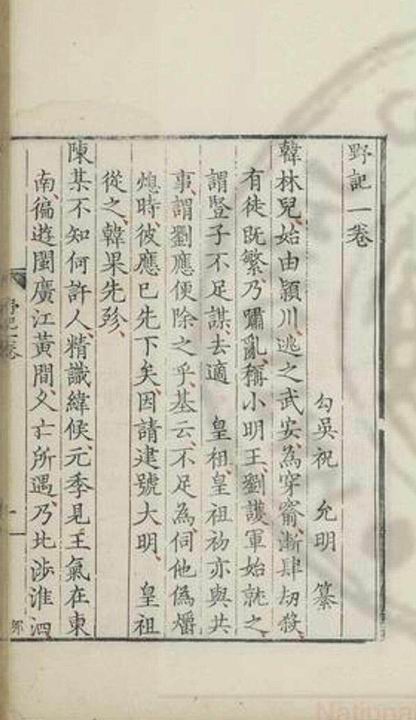 野記一卷
勾吳祝 允明 纂
韓林兒始由潁川逃之武安為穿窬漸肆劫殺
有徒既繁乃嘯亂稱小明王劉護軍始就之
謂豎子不足謀去適 皇祖皇祖初亦與共
事謂劉應便除之乎基云不足為伺他偽爝
熄時彼應已先下矣因請建號大明 皇祖
從之韓果先殄
陳某不知何許人精識緯候元季見王氣在東
南徧遊閩廣江黃間久亡所遇乃北渉淮泗
野記一卷
一
Nationa